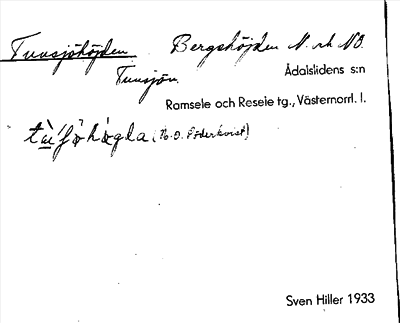 Tunsjöhöjden Bergshöjden N. och NO.
Tunsjön
Ådalslidens s:n
Ramsele och Resele tg., Västernorrl. l.
(N.O. Söderkvist)
Sven Hiller 1933